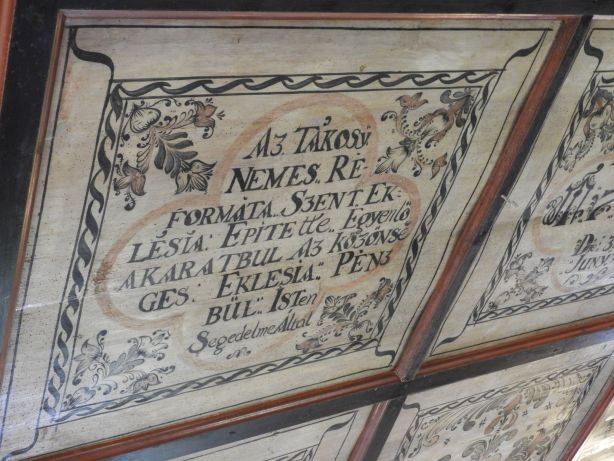 AZ TÁKOSY
NEMES.. RE-
FORMÁTA.. SZENT. EK-
LÉSIA. EPITEtte.. Egyenlő
AKARATBUL AZ KÖZÖNSÉ
GES. EKLESIA.. PÉNZ
BÜL.. ISten
SegedelmeÁltal